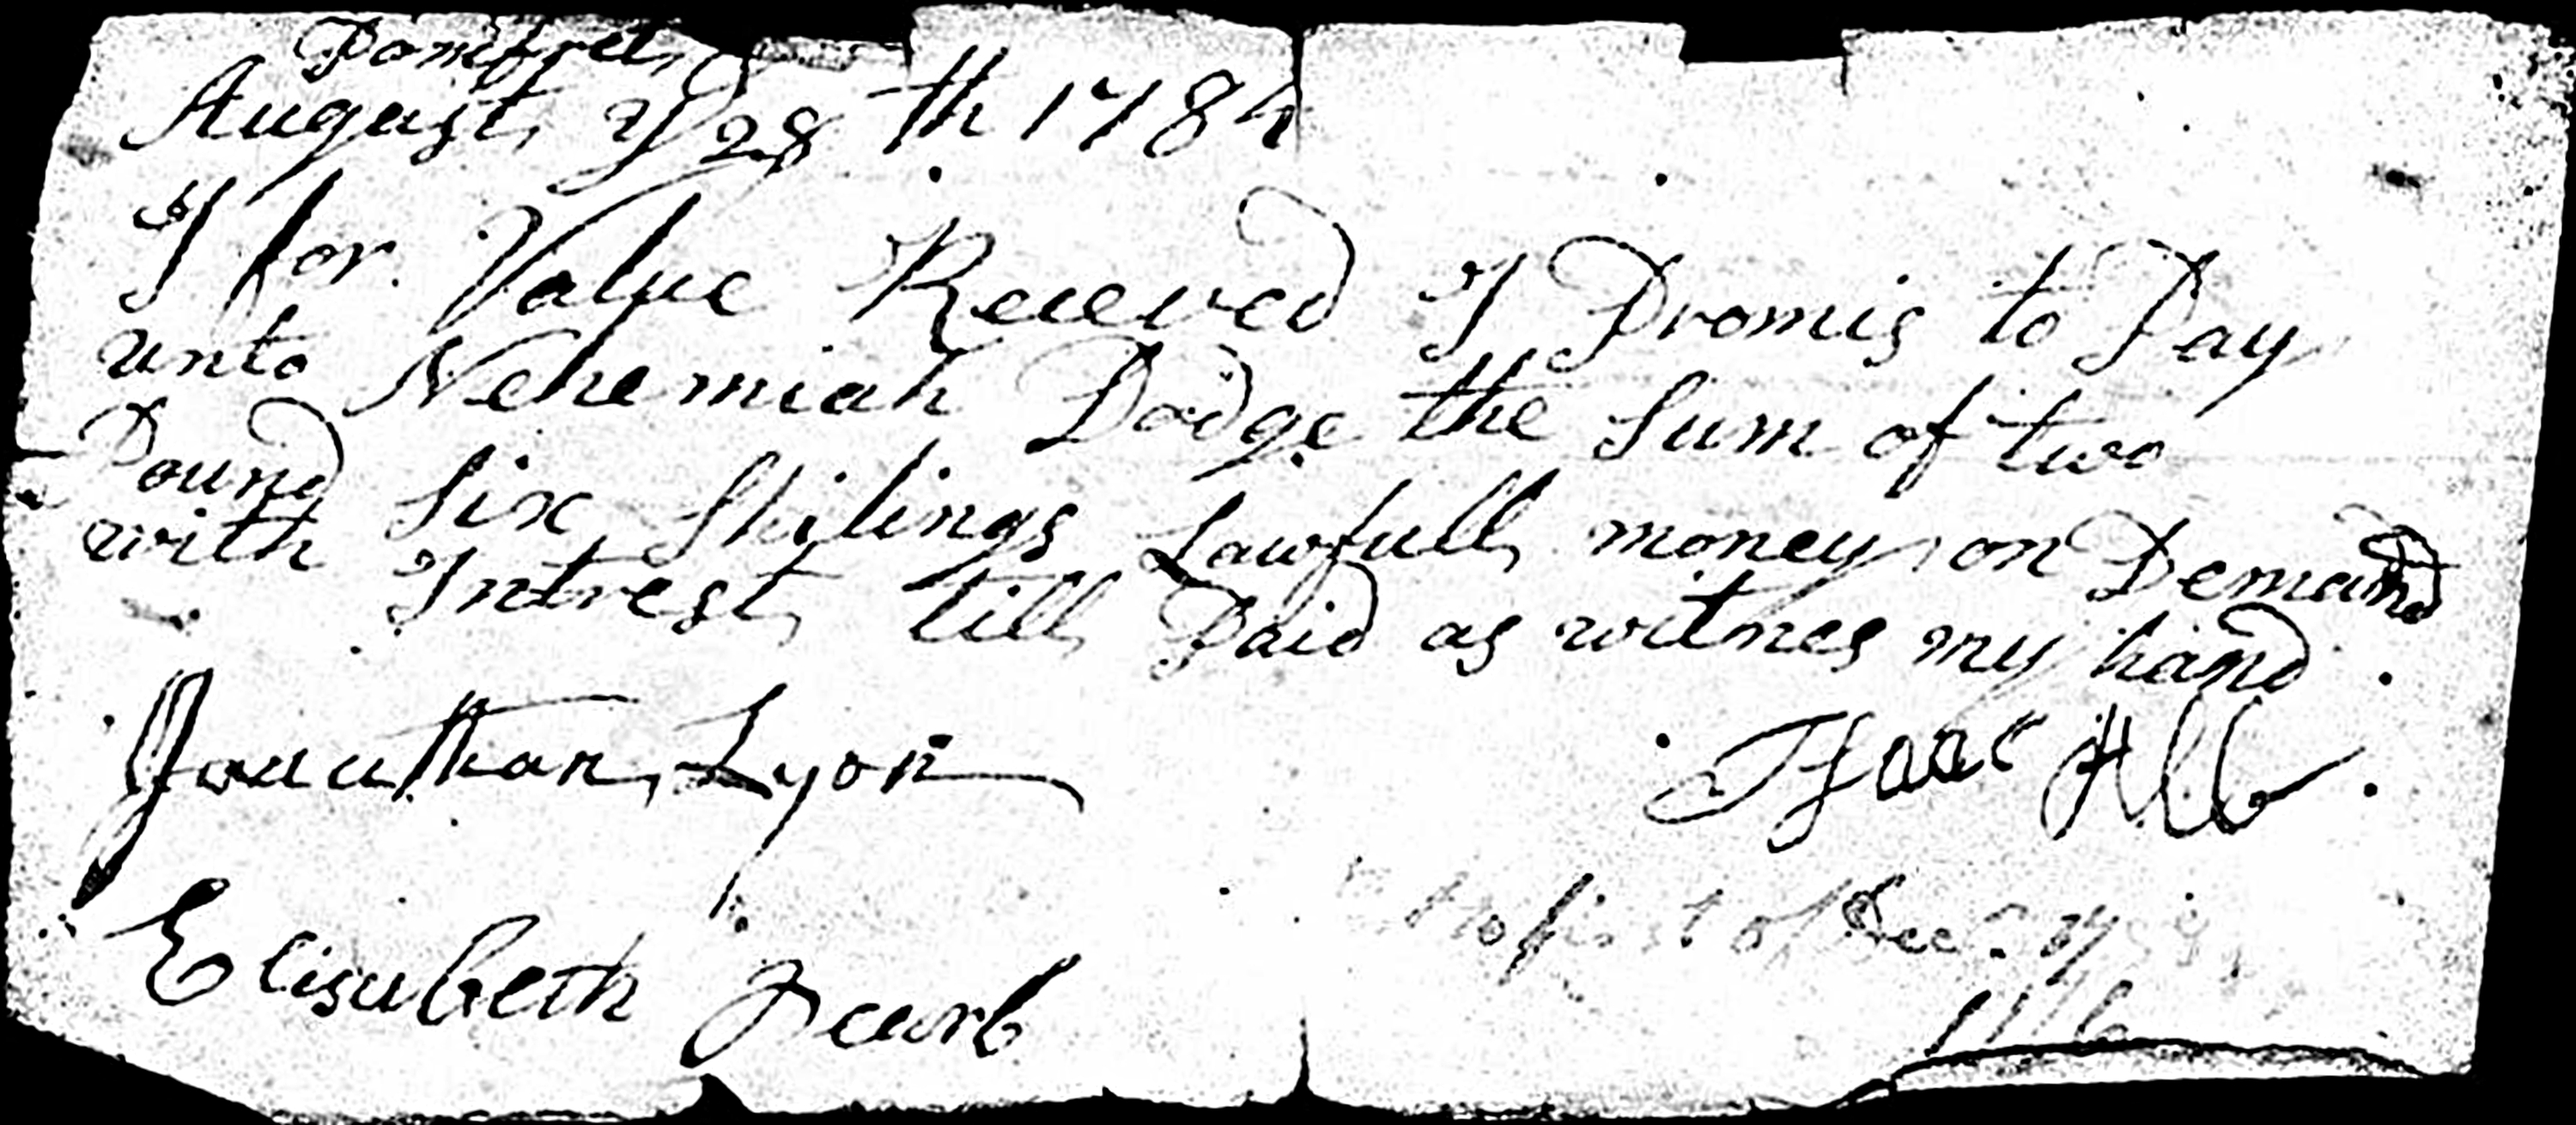 Pomfret,
August, ye 28 th 1784
I for Value Receved I Promis to Pay
unto Nehemiah Dodge the Sum of two
Pound Six Shilings Lawfull money on Demand
with Intrest till Paid as witnes my hand
Jonathan Lyon
Isaac
Elisabeth